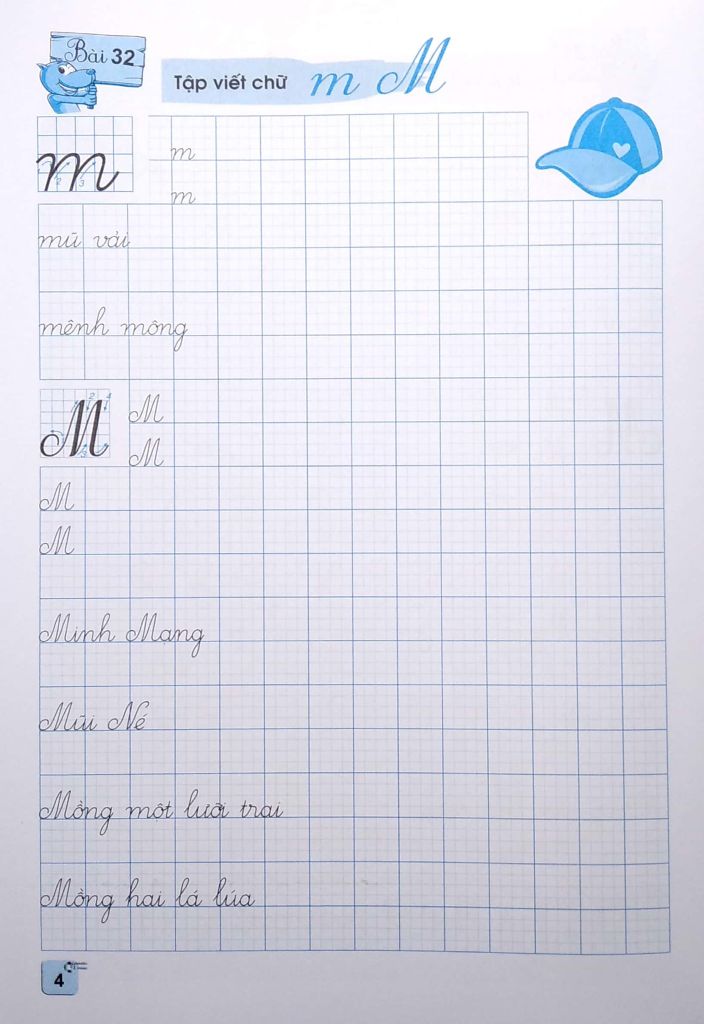 Bài 32
Tập viết chữ m M
m
m
m
mũ vải
mênh mông
M
M
M
M
M
Minh Mạng
Mũi Né
Mồng một lưỡi trai
Mồng hai lá lúa
4